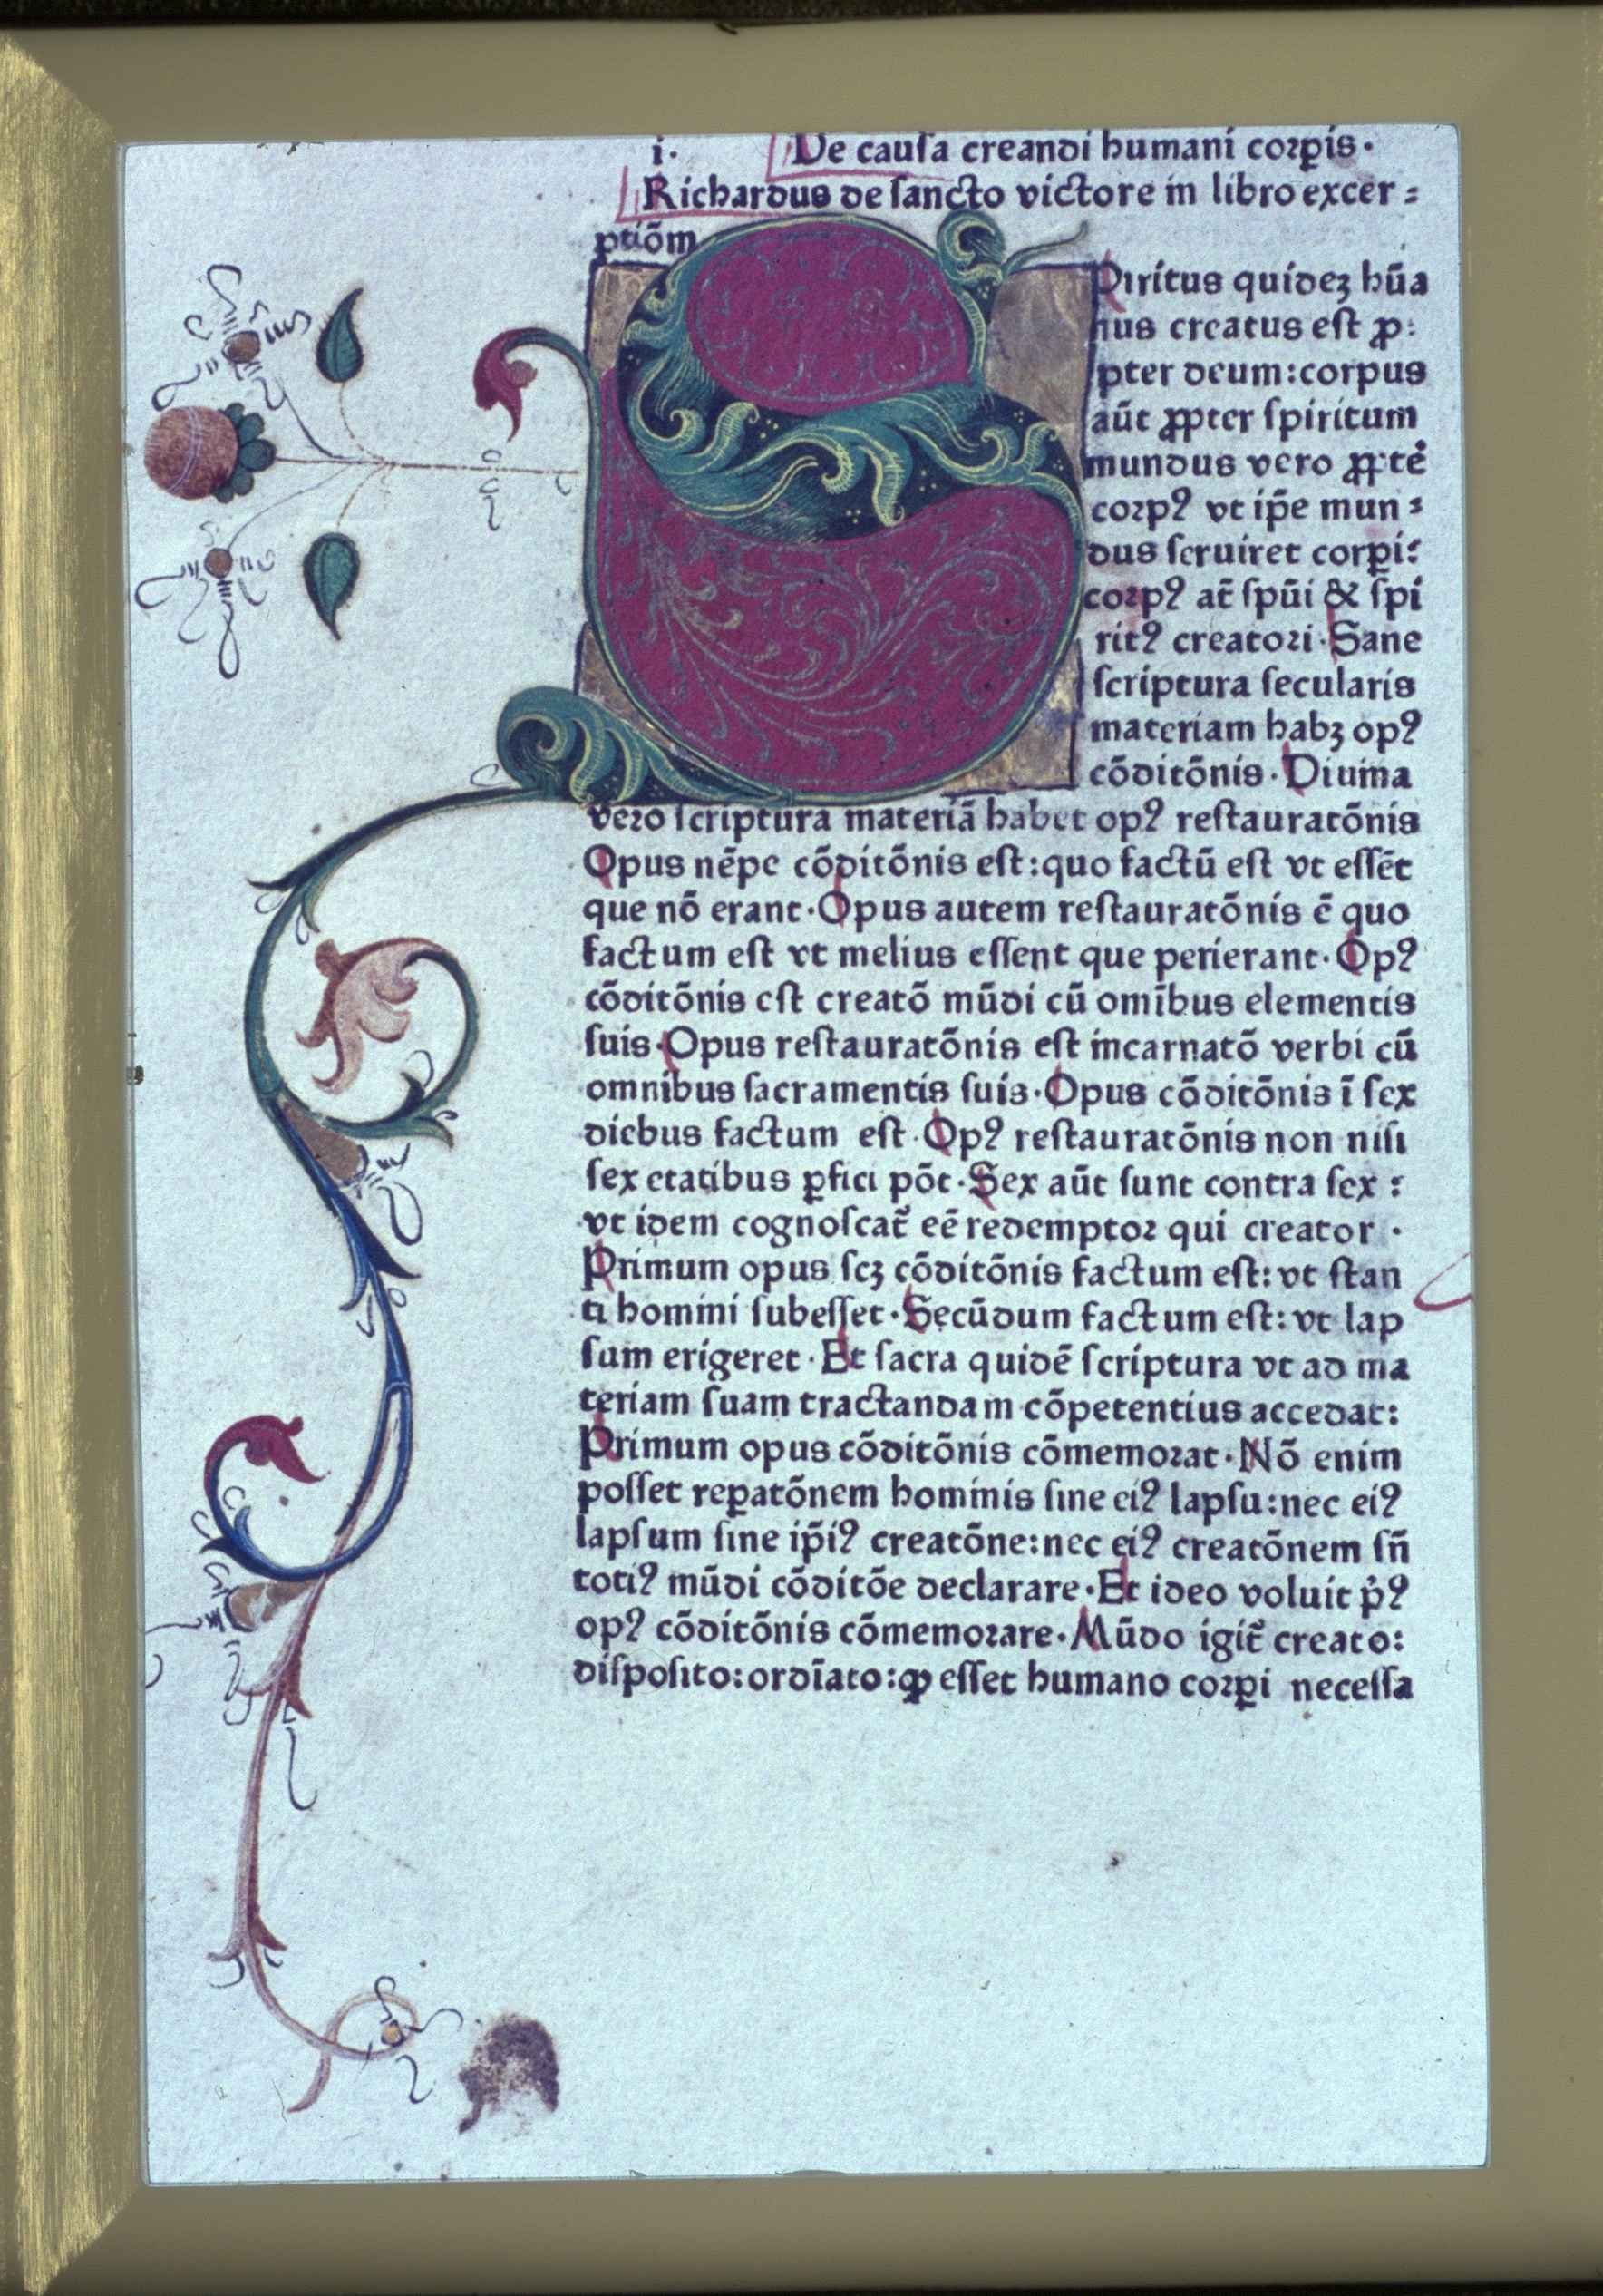 i. De cauſa creandi humani corꝑis.
Richardus de ſancto victore in libro excer⸗
ptiōm
SPiritus quideꝫ hūa
nus creatus eſt ꝓ:
pter deum: corpus
aūt ꝓpter ſpiritum
mundus vero ꝓpter
corpꝰ vt ip̄e mun⸗
dus ſeruiret corꝑi:
corpꝰ at̄ ſpūi & ſpi
ritꝰ creatori. Sane
ſcriptura ſecularis
materiam habꝫ opꝰ
cōditōnis. Diuina
vero ſcriptura materiā habet opꝰ reſtauratōnis
Opus nēpe cōditōnis eſt: quo factū eſt vt eſſēt
que nō erant. Opus autem reſtauratōnis ē quo
factum eſt vt melius eſſent que perierant. Opꝰ
cōditōnis eſt creatō mūdi cū omībus elementis
ſuis. Opus reſtauratōnis eſt incarnatō verbi cū
omnibus ſacramentis ſuis. Opus cōditōnis ī ſex
diebus factum eſt. Opꝰ reſtauratōnis non niſi
ſex etatibus ꝑfici pōt. Sex aūt ſunt contra ſex:
vt idem cognoſcat̄ eē redemptor qui creator.
Primum opus ſcꝫ cōditōnis factum eſt: vt ſtan
ti homini ſubeſſet. Secūdum factum eſt: vt lap
ſum erigeret. Et ſacra quidē ſcriptura vt ad ma
teriam ſuam tractandam cōpetentius accedat:
Primum opus cōditōnis cōmemorat. Nō enim
poſſet reꝑatōnem hominis ſine eiꝰ lapſu: nec eiꝰ
lapſum ſine ip̄iꝰ creatōne: nec eiꝰ creatōnem ſn̄
totiꝰ mūdi cōditōe declarare. Et ideo voluit p̓ꝰ
opꝰ cōditōnis cōmemorare. Mūdo igit̄ creato:
diſpoſito: ordīato: ꝙ eſſet humano corꝑi neceſſa